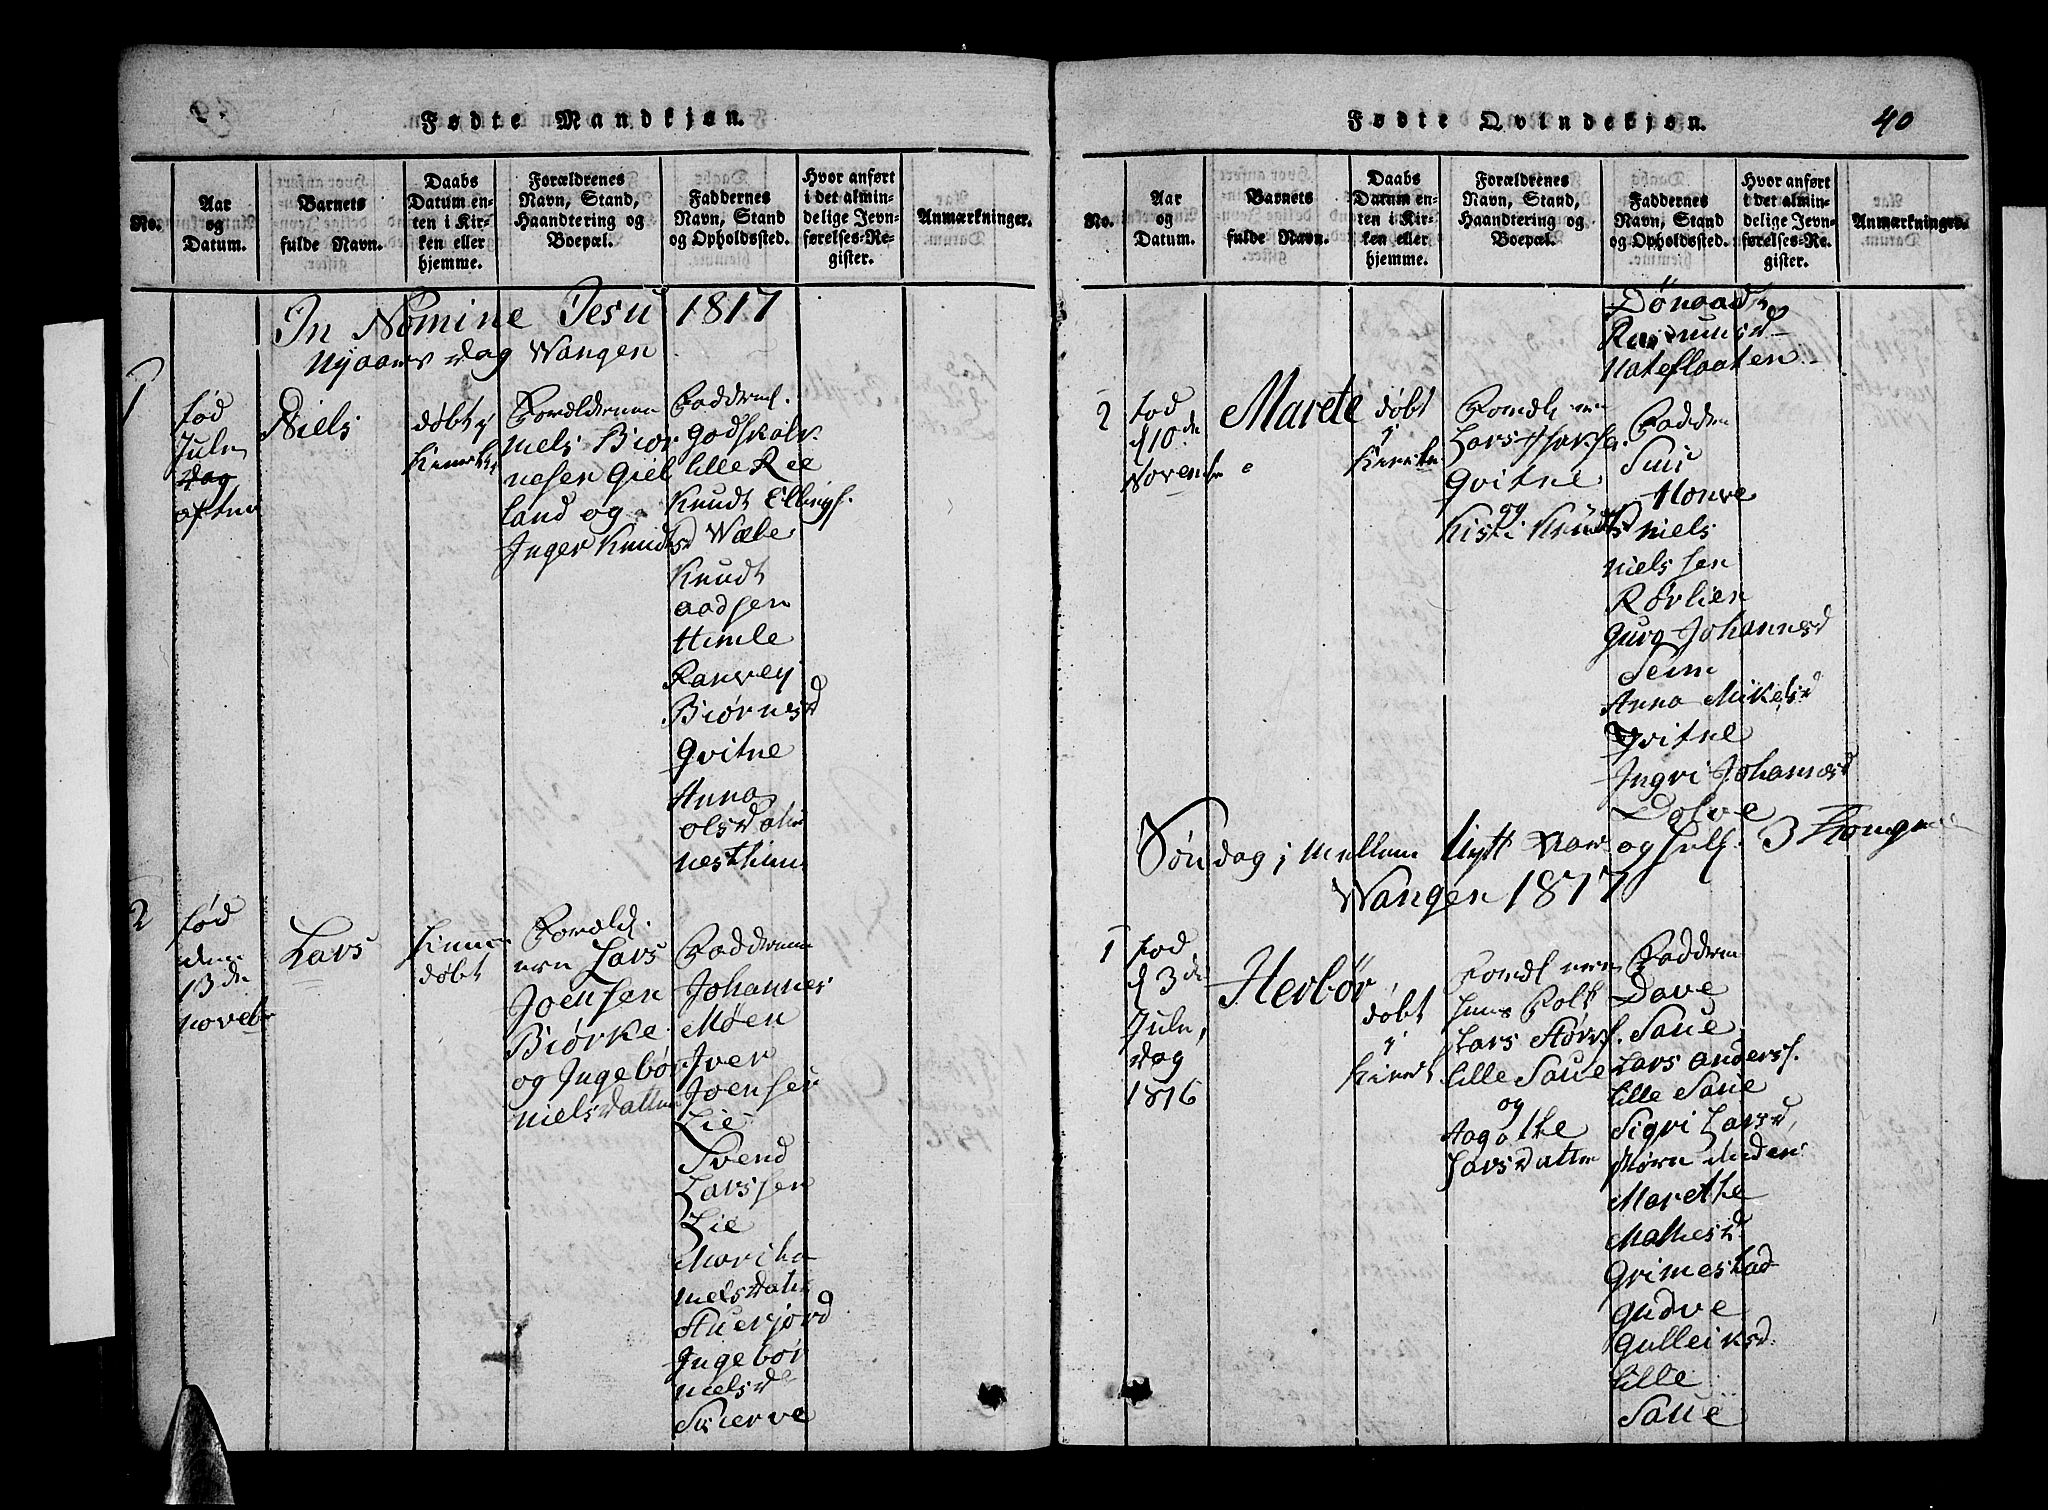 Fødte Mandkjøn.
No.
Aar
og
Datum.
Barnets
fulde Navn.
Daabs
Datum en-
ten i Kir-
ken eller
hjemme.
Forældrenes
Navn, Stand,
Haandtering og
Boepæl.
Faddernes
Navn, Stand
og Opholdssted.
Hvor anført
i det almin-
delige Jevn-
førelses-Re-
gister.
Anmærkninger.
In Nomine Jesu 1817
Nyaars dag Wangen
1
fød
Jule
dag
aften
Niels
døbt i
Forældrene
Niels Biør
nesen Giel
land og
Inger Knudsd
Fadders.
Godskalk
lille Ree
Knudt Ellings.
Wæle
Knudt
aadsen
Himle
Ranvey
Biørnesd
Qvitne
Anna
olsdatter
Nesthun
2
fød
den
13 de
Novebr
Lars
døbt
Foræld.
ern Lars
Joensen
Biørke
og Ingebør
Nielsdatter
Fadderne
Johannes
Møen
Iver
Joensen
Lie
Svend
Larssen
Lie
Maritha
nielsdatter
Ingebør
nielsd
Skierve
Fødte Qvindekjøn.
40
No.
Aar
og
Datum.
Barnets
fulde Navn.
Daabs
Datum en-
ten i Kir-
ken eller
hjemme.
Forældrenes
Navn, Stand,
Haandtering og
Boepæl.
Faddernes
Navn, Stand
og Opholdssted.
Hvor anført
i det almin-
delige Jevn-
førelses-Re-
gister.
Anmærkninger.
Rasmusd
Nateflaaten
2
fød
d 10 de
Novembr
Marete
døbt
i
Kirken
Lars
Qvitne
og
Kisti Knudsd
Faddern
Honve
Niels
Nielssen
Rørlien
Guro Johannesd
Seim
Anna Mikelsd
Qvitne
Ingri Johannesd
Dolve
Søndag i mellem Nytt aar og hell. 3 Konger
Wangen 1817
1
fød
d 3 de
Jule
dag
1816
Herbør
døbt
i
Folk
Lars Størs.
lille Saue
og
Aagothe
Larsdatter
Faddern
Dave
Saue
Lars anders.
lille Saue
Sigri Larsd
Marethe
Mathesd
Grimestad
Gudve
Gulleiksd.
lille
Saue